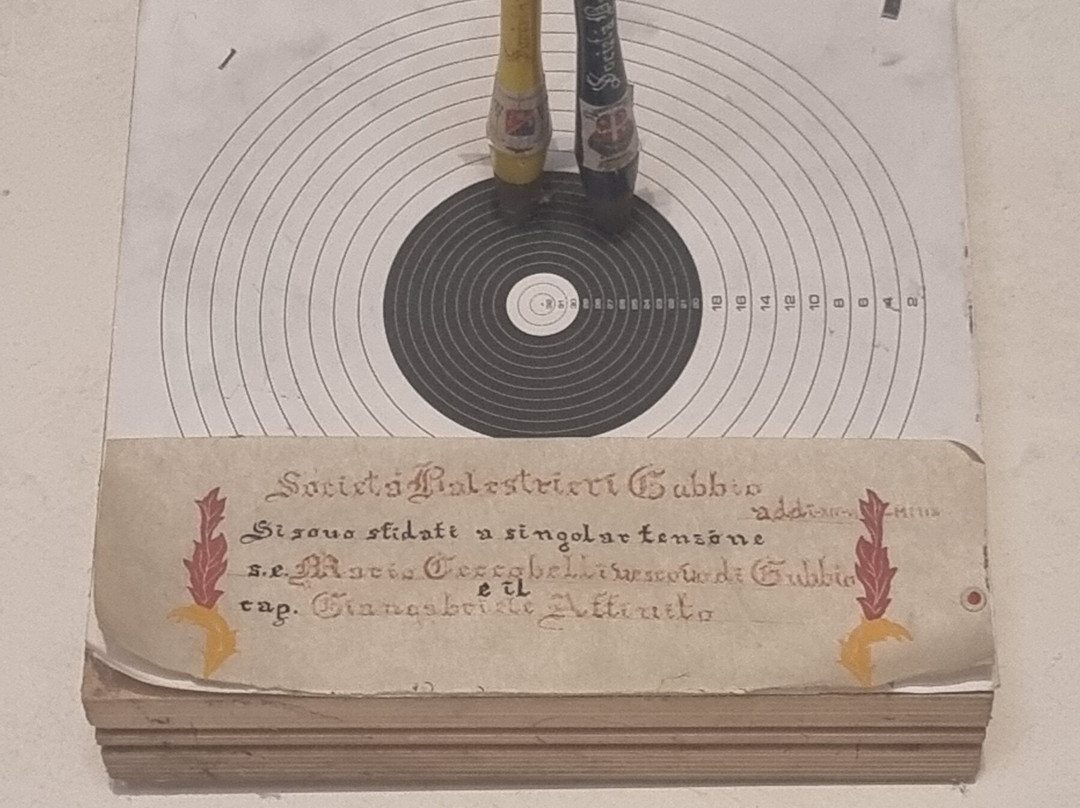 Società Balestrieri Gubbio
addì
Si sono sfidati a singolar tenzone
s.e. Mario Ceccobelli vescovo di Gubbio
e il
cap. Giangabriele Affinito
18 16 14 12 10 8 6 4 2